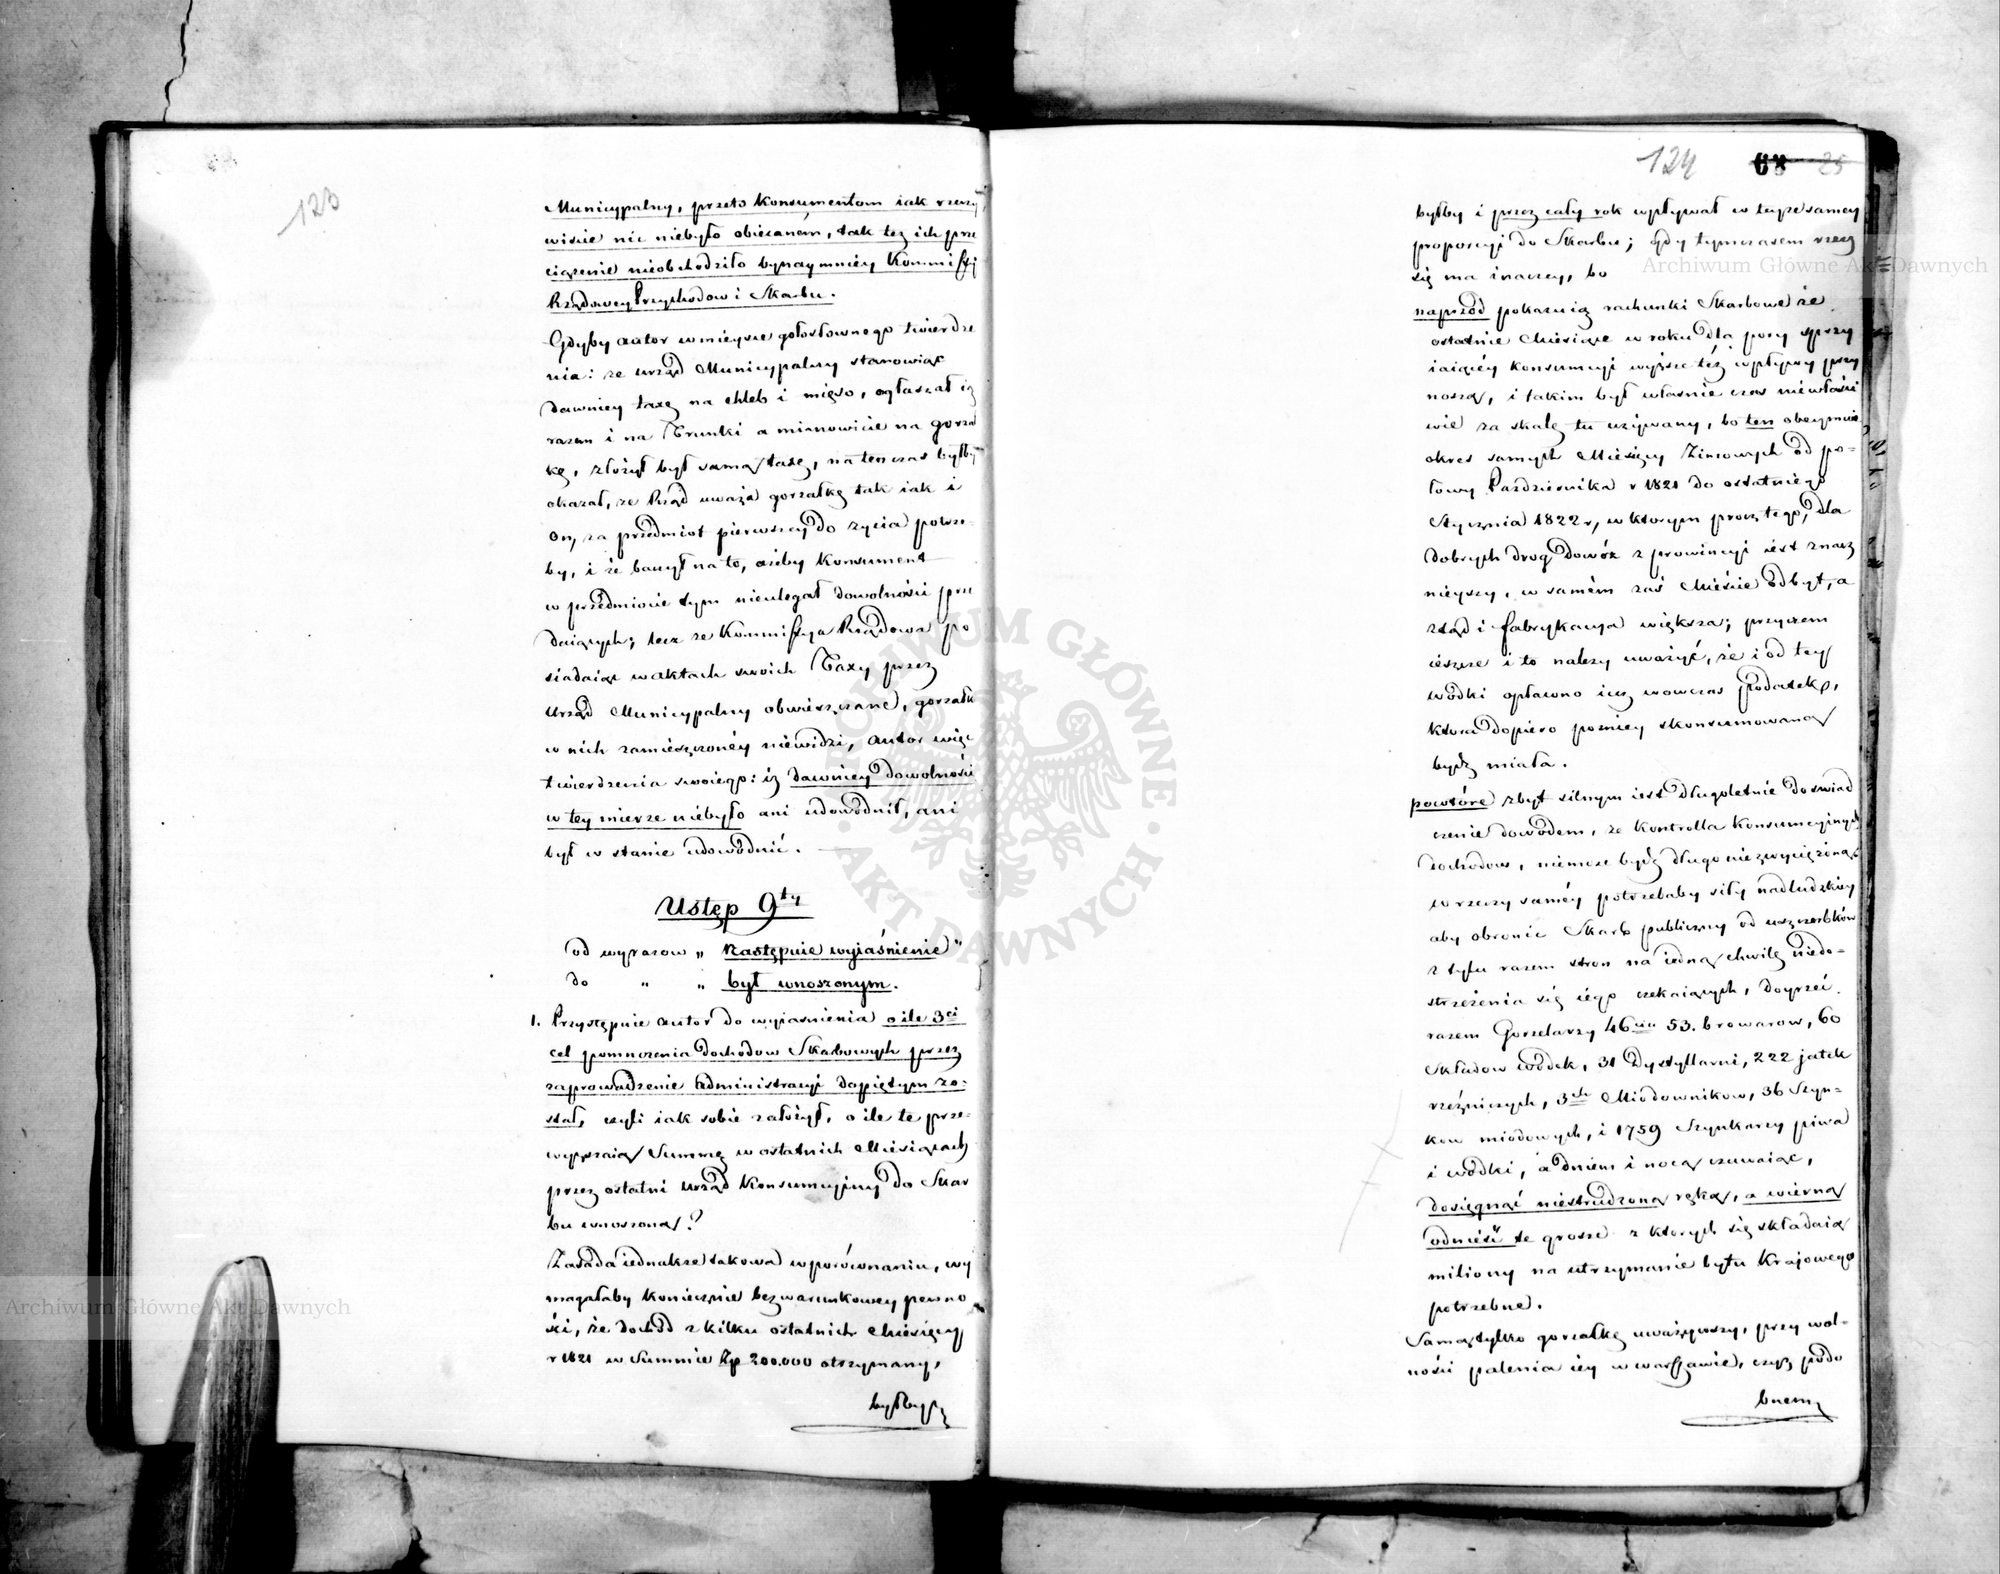 123
Municypalny, przeto Konsumentom iak rzeczy
wiście nic niebyło obiecanem, tak też ich prze
ciążenie nieobchodziło bynaymniéy Kommissyi
Rządowey Przychodow i Skarbu.
Gdyby autor w mieysce gołosłownego twierdze
nia: że urząd Municypalny stanowiąc
dawniey taxę na chleb i mięso, ogłaszał ią
razem i na Trunki a mianowicie na gorzał
kę, złożył był samą taxę, na ten czas byłby
okazał, że Rząd uważa gorzałkę tak iak i
On, za przedmiot pierwszey do życia potrze-
by, i że baczył na to, ażeby Konsument
w przedmiocie tym nieulegał dowolności prze
daiących; lecz że Kommissya Rządowa po
siadaiąc w aktach swoich Taxy przez
Urząd Municypalny obwieszczane, gorzałki
w nich zamieszczonéy niewidzi, autor więc
twierdzenia swoiego: iż dawniey dowolności
w tey mierze niebyło ani udowodnił, ani
był w stanie udowodnić.
Ustęp 9ty
od wyrazow „ Następnie wyiaśnienie "
do " „ był wnoszonym.
1. Przystępuie autor do wyiasnienia o ile 3ci
cel pomnożenia dochodow Skarbowych przez
zaprowadzenie Administracyi dopiętym zo-
stał, czyli iak sobie założył, o ile te prze-
wyższaią Summę w ostatnich Miesiącach
przez ostatni Urząd Konsumcyiny do Skar
bu wnoszoną?
Zasada iednakże takowa w porównaniu, wy
magałaby koniecznie bezwarunkowey pewno
ści, że dochód z kilku ostatnich Miesięcy
r 1821 w Summie Zp 200.000 otrzymany,
byłby
124 25
byłby i przez cały rok wpływał w teyże samey
proporcyi do Skarbu; gdy tymczasem rzecz
się ma inaczey, bo
naprzód pokazuią rachunki Skarbowe że
ostatnie Miesiące w roku dla pory sprzy
iaiącéy konsumcyi wyższe téż wpływy przy
noszą, i takim był właśnie czas niewłaści
wie za skalę tu używany, bo ten obeymuie
okres samych Miesięcy Zimowych od po-
łowy Pazdziernika r 1821 do ostatniego
Stycznia 1822 r, w ktorym procz tego, dla
dobrych drog, dowóz z prowincyi iest znacz
nieyszy, w samém zaś Mieście odbyt, a
ztąd i fabrykacya większa; przyczem
ieszcze i to należy uważyć, że i od tey
wodki opłacono iuż wowczas podatek,
ktora dopiero pozniey skonsumowaną
bydź miała.
powtóre zbyt silnym iest długoletnie doswiad
czenie dowodem, że Kontrolla Konsumcyinych
dochodow, niemoże bydź długo niezwyciężoną
w rzeczy saméy potrzebaby siły nadludzkiey
aby obronić Skarb publiczny od uszczerbków
z tylu razem stron na iedną chwilę niedo-
strzeżenia się iégo czekaiących, doyrzeć
razem Gorzelarzy 46 53. browarow, 60
Składow wódek, 31 Dystyllarni, 222 jatek
rzeźniczych, 3ch Miodownikow, 36 Szyn-
kow miodowych, i 1759 Szynkarzy piwa
i wódki, a dniem i nocą czuwaiąc,
dosięgnąć niestrudzoną ręką, a wierną
odnieść te grosze z ktorych się składaią
miliony na utrzymanie bytu Krajowego
potrzebne.
Samą tylko gorzałkę uważywszy, przy wol-
ności palenia iéy w Warszawie, czyż podo
bnem
Archiwum Główne Akt Dawnych
Archiwum Główne Akt Dawnych
ARCHIWUM GŁÓWNE · AKT DAWNYCH ·